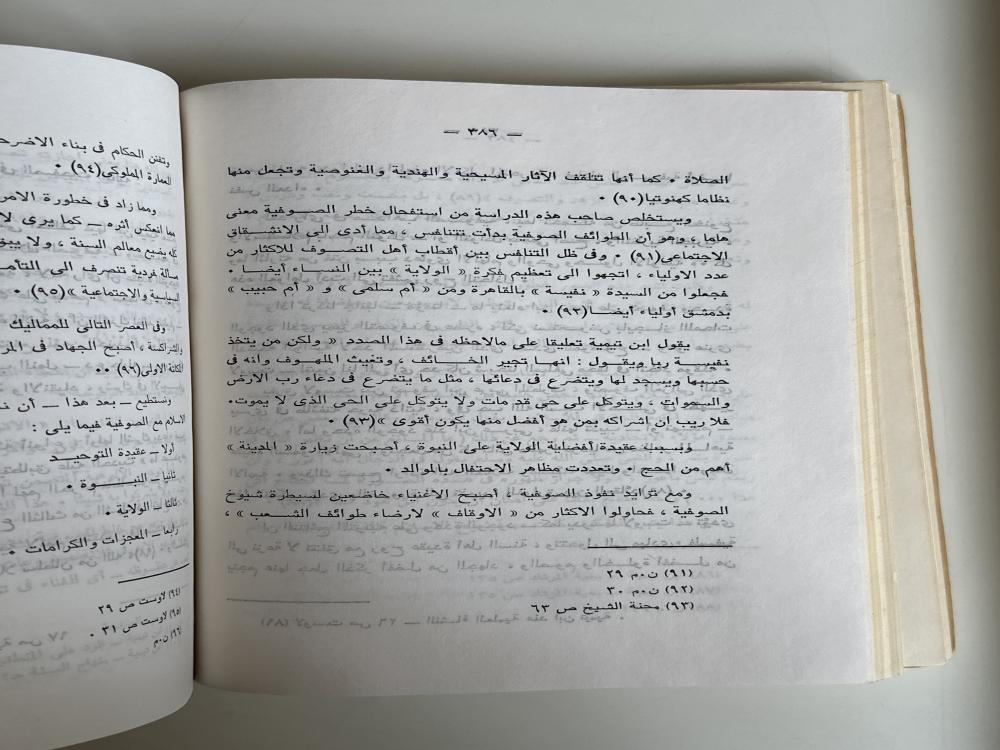 — ٣٨٦ —
الصلاة • كما أنها تتلقف الآثار المسيحية والهندية والغنوصية وتجعل منها
نظاما كهنوتيا(٩٠) •
ويستخلص صاحب هذه الدراسة من استفحال خطر الصوفية معنى
هاما ، وهو أن الطوائف الصوفية بدأت تتنافس ، مما أدى الى الانشقاق
الاجتماعى(٩١) • وفى ظل التنافس بين أقطاب أهل التصوف للاكثار من
عدد الاولياء ، اتجهوا الى تعظيم فكرة « الولاية » بين النساء أيضا •
فجعلوا من السيدة « نفيسة » بالقاهرة ومن « أم سلمى » و « أم حبيب »
بدمشق أولياء أيضا(٩٢) •
يقول ابن تيمية تعليقا على مالاحظه فى هذا الصدد « ولكن من يتخذ
نفيسة ربا ويقول : انها تجير الخائف ، وتغيث الملهوف وانه فى
حسبها ويسجد لها ويتضرع فى دعائها ، مثل ما يتضرع فى دعاء رب الارض
والسموات ، ويتوكل على حى قد مات ولا يتوكل على الحى الذى لا يموت.
فلا ريب ان اشراكه بمن هو أفضل منها يكون أقوى »(٩٣) •
وبسبب عقيدة أفضلية الولاية على النبوة ، أصبحت زيارة « المدينة »
أهم من الحج • وتعددت مظاهر الاحتفال بالموالد •
ومع تزايد نفوذ الصوفية ، أصبح الاغنياء خاضعين لسيطرة شيوخ
الصوفية ، فحاولوا الاكثار من « الاوقاف » لارضاء طوائف الشعب » ،
(٩١) ن٠م ٢٩
(٩٢) ن٠م ٣٠
(٩٣) محنة الشيخ ص ٦٣
وتفنن الحكام فى بناء الاضرحـ
العمارة المملوكى(٩٤) •
ومما زاد فى خطورة الامر
مما انعكس أثره — كما يرى لا
كله يضيع معالم السنة ، ولا يبو
مسألة فردية تنصرف الى التأمـ
السياسية والاجتماعية »(٩٥) •
وفى العصر التالى للمماليك
والشراكسة ، أصبح الجهاد فى المر
المكانة الاولى(٩٦) • •
ونستطيع — بعد هذا — أن نـ
الاسلام مع الصوفية فيما يلى :
أولا — عقيدة التوحيـد
ثانيا — النبـوة •
ثالثا — الولاية •
رابعا — المعجزات والكرامات •
(٩٤) لاوست ص ٢٩
(٩٥) لاوست ص ٣١ •
(٩٦) ن٠م